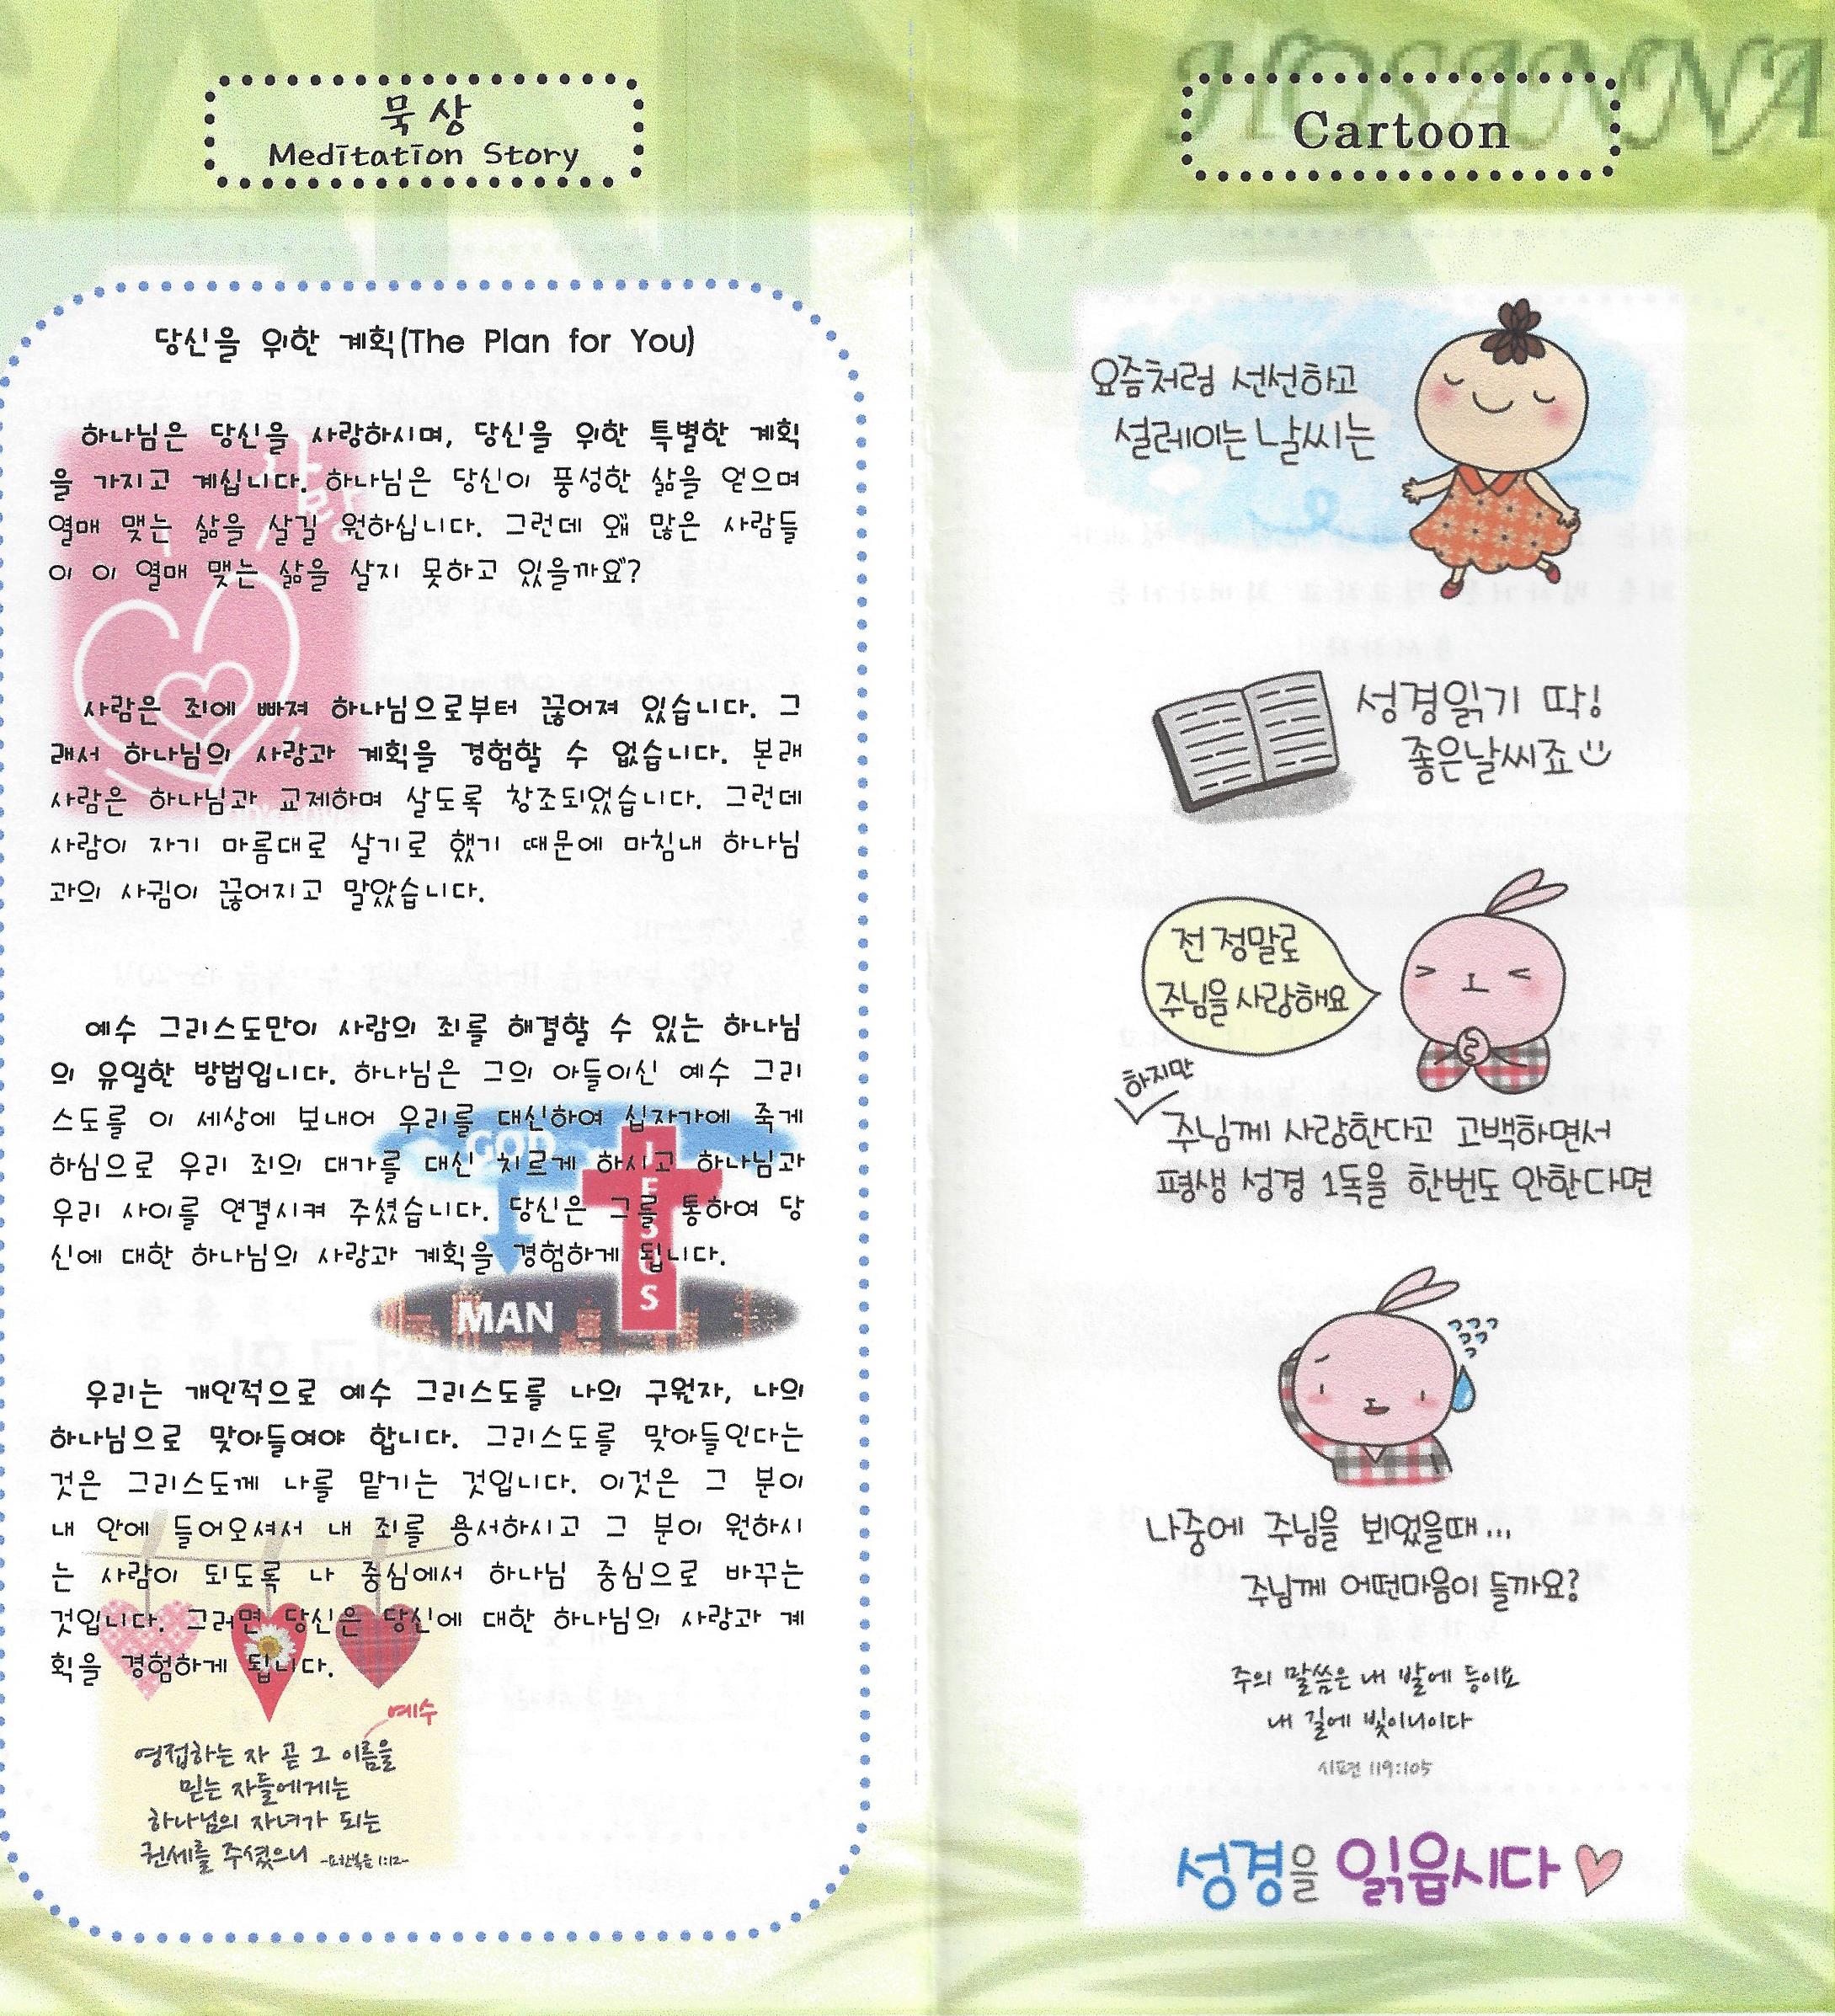 묵상
Meditation Story
당신을 위한 계획(The Plan for You)
하나님은 당신을 사랑하시며, 당신을 위한 특별한 계획
을 가지고 계십니다. 하나님은 당신이 풍성한 삶을 얻으며
열매 맺는 삶을 살길 원하십니다. 그런데 왜 많은 사람들
이 이 열매 맺는 삶을 살지 못하고 있을까요?
사랑
사람은 죄에 빠져 하나님으로부터 끊어져 있습니다. 그
래서 하나님의 사랑과 계획을 경험할 수 없습니다. 본래
사람은 하나님과 교제하며 살도록 창조되었습니다. 그런데
사람이 자기 마름대로 살기로 했기 때문에 마침내 하나님
과의 사귐이 끊어지고 말았습니다.
예수 그리스도만이 사람의 죄를 해결할 수 있는 하나님
의 유일한 방법입니다. 하나님은 그의 아들이신 예수 그리
스도를 이 세상에 보내어 우리를 대신하여 십자가에 죽게
하심으로 우리 죄의 대가를 대신 치르게 하시고 하나님과
우리 사이를 연결시켜 주셨습니다. 당신은 그를 통하여 당
신에 대한 하나님의 사랑과 계획을 경험하게 됩니다.
GOD
JESUS
MAN
우리는 개인적으로 예수 그리스도를 나의 구원자, 나의
하나님으로 맞아들여야 합니다. 그리스도를 맞아들인다는
것은 그리스도께 나를 맡기는 것입니다. 이것은 그 분이
내 안에 들어오셔서 내 죄를 용서하시고 그 분이 원하시
는 사람이 되도록 나 중심에서 하나님 중심으로 바꾸는
것입니다. 그러면 당신은 당신에 대한 하나님의 사랑과 계
획을 경험하게 됩니다.
예수
영접하는 자 곧 그 이름을
믿는 자들에게는
하나님의 자녀가 되는
권세를 주셨으니 -요한복음 1:12-
HOSANNA
Cartoon
요즘처럼 선선하고
설레이는 날씨는
성경읽기 딱!
좋은날씨죠
전 정말로
주님을 사랑해요
하지만
주님께 사랑한다고 고백하면서
평생 성경 1독을 한번도 안한다면
나중에 주님을 뵈었을때...
주님께 어떤마음이 들까요?
주의 말씀은 내 발에 등이요
내 길에 빛이니이다
시편 119:105
성경을 읽읍시다